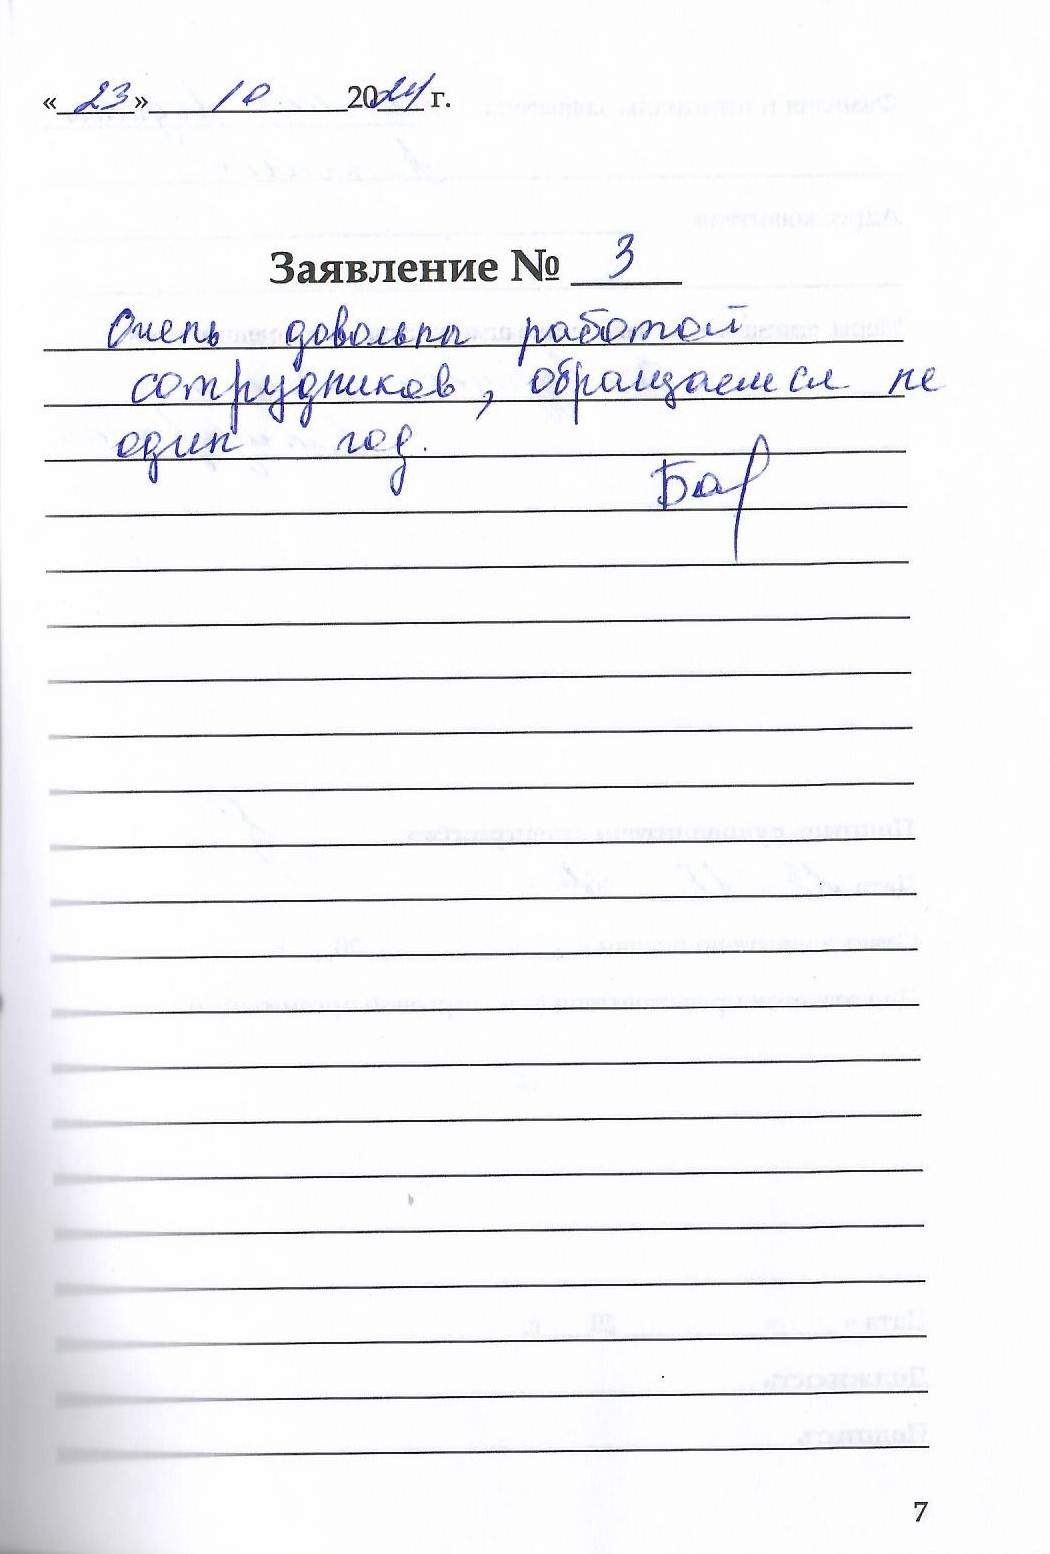 «23» 10 2024 г.
Заявление № 3
Очень довольны работой
сотрудников, обращаемся не
один год.
Бар
7